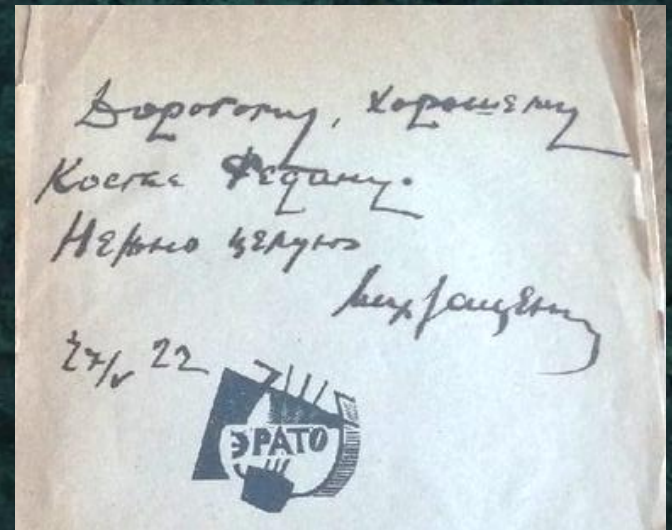 Дорогому, хорошему
Косте Федину.
Нежно целую
Мих Зощенко
27/V 22
ЭРАТО